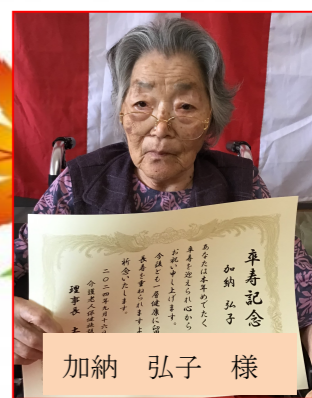 卒寿記念
加納 弘子
あなたは本年めでたく
卒寿を迎えられ心から
お祝い申し上げます。
今後とも一層健康に留
長寿を重ねられますよ
祈念いたします。
二〇二四年九月十六日
介護老人保健施設
理事長
加納 弘子 様